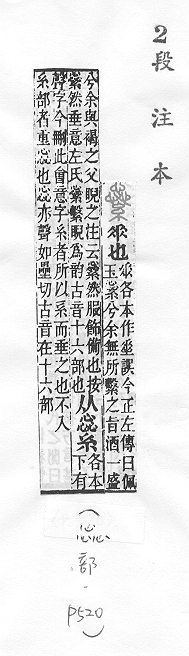 2段注本
繠 𠂹也
𠂹各本作垂誤今正左傳曰佩
玉繠兮余無所繫之旨酒一盛
兮余與褐之父睨之注云繠然服飾備也按
繠然垂意左氏繠繫睨爲韵古音十六部也
从惢糸
各本
下有
聲字今刪此會意字糸者所以系而垂之也不入
糸部者重惢也惢亦聲如壘切古音在十六部
(惢部·P520)